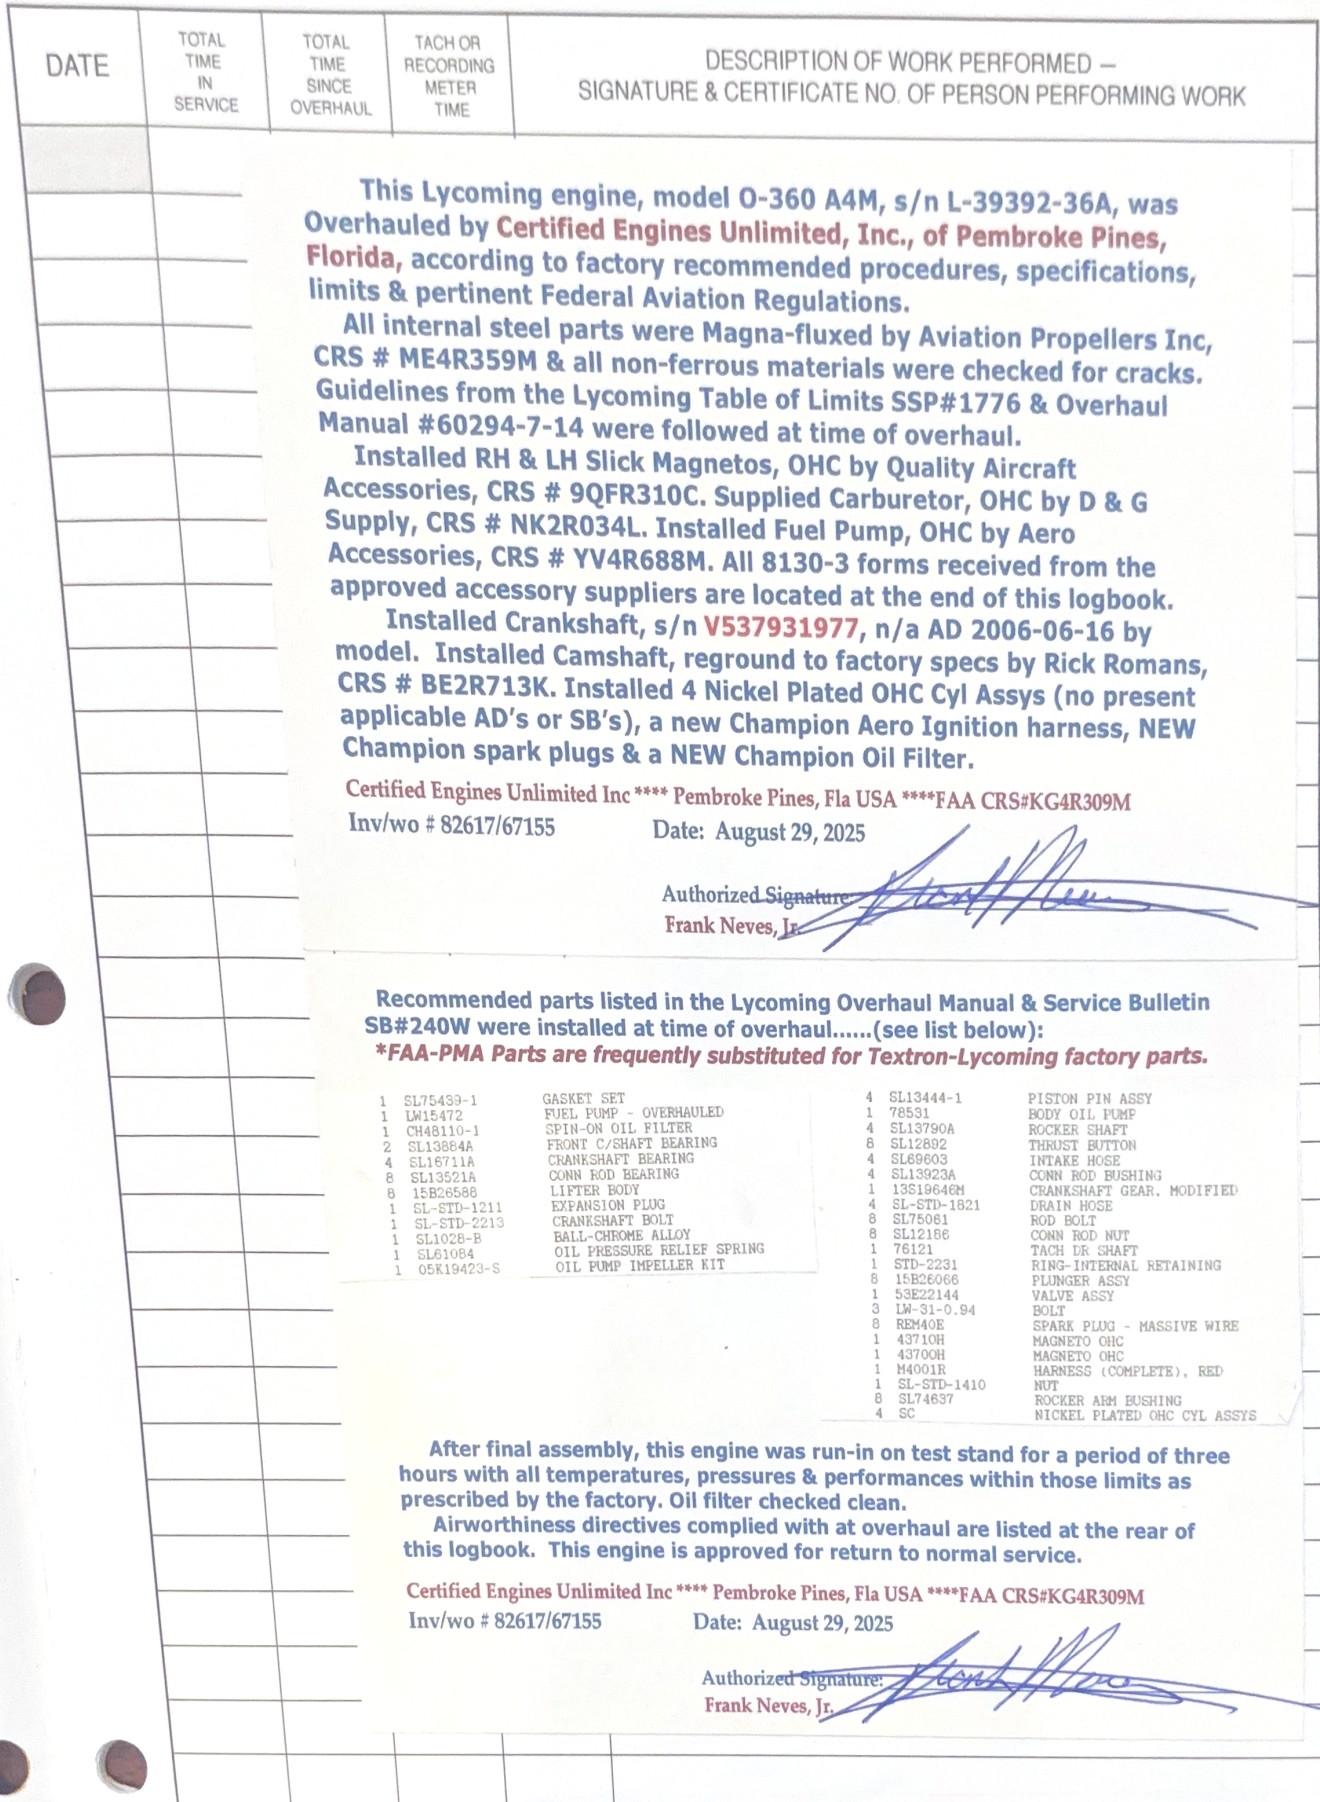 DATE
TOTAL
TIME
IN
SERVICE
TOTAL
TIME
SINCE
OVERHAUL
TACH OR
RECORDING
METER
TIME
DESCRIPTION OF WORK PERFORMED —
SIGNATURE & CERTIFICATE NO. OF PERSON PERFORMING WORK
This Lycoming engine, model O-360 A4M, s/n L-39392-36A, was
Overhauled by Certified Engines Unlimited, Inc., of Pembroke Pines,
Florida, according to factory recommended procedures, specifications,
limits & pertinent Federal Aviation Regulations.
All internal steel parts were Magna-fluxed by Aviation Propellers Inc,
CRS # ME4R359M & all non-ferrous materials were checked for cracks.
Guidelines from the Lycoming Table of Limits SSP#1776 & Overhaul
Manual #60294-7-14 were followed at time of overhaul.
Installed RH & LH Slick Magnetos, OHC by Quality Aircraft
Accessories, CRS # 9QFR310C. Supplied Carburetor, OHC by D & G
Supply, CRS # NK2R034L. Installed Fuel Pump, OHC by Aero
Accessories, CRS # YV4R688M. All 8130-3 forms received from the
approved accessory suppliers are located at the end of this logbook.
Installed Crankshaft, s/n V537931977, n/a AD 2006-06-16 by
model. Installed Camshaft, reground to factory specs by Rick Romans,
CRS # BE2R713K. Installed 4 Nickel Plated OHC Cyl Assys (no present
applicable AD's or SB's), a new Champion Aero Ignition harness, NEW
Champion spark plugs & a NEW Champion Oil Filter.
Certified Engines Unlimited Inc **** Pembroke Pines, Fla USA ****FAA CRS#KG4R309M
Inv/wo # 82617/67155 Date: August 29, 2025
Authorized Signature:
Frank Neves, Jr.
Recommended parts listed in the Lycoming Overhaul Manual & Service Bulletin
SB#240W were installed at time of overhaul......(see list below):
*FAA-PMA Parts are frequently substituted for Textron-Lycoming factory parts.
1 SL75439-1 GASKET SET
1 LW15472 FUEL PUMP - OVERHAULED
1 CH48110-1 SPIN-ON OIL FILTER
2 SL13884A FRONT C/SHAFT BEARING
4 SL16711A CRANKSHAFT BEARING
8 SL13521A CONN ROD BEARING
8 15B26588 LIFTER BODY
1 SL-STD-1211 EXPANSION PLUG
1 SL-STD-2213 CRANKSHAFT BOLT
1 SL1028-B BALL-CHROME ALLOY
1 SL61084 OIL PRESSURE RELIEF SPRING
1 05K19423-S OIL PUMP IMPELLER KIT
4 SL13444-1 PISTON PIN ASSY
1 78531 BODY OIL PUMP
4 SL13790A ROCKER SHAFT
8 SL12892 THRUST BUTTON
4 SL69603 INTAKE HOSE
4 SL13923A CONN ROD BUSHING
1 13S19646M CRANKSHAFT GEAR, MODIFIED
4 SL-STD-1821 DRAIN HOSE
8 SL75061 ROD BOLT
8 SL12186 CONN ROD NUT
1 76121 TACH DR SHAFT
1 STD-2231 RING-INTERNAL RETAINING
8 15B26066 PLUNGER ASSY
1 53E22144 VALVE ASSY
3 LW-31-0.94 BOLT
8 REM40E SPARK PLUG - MASSIVE WIRE
1 4371OH MAGNETO OHC
1 4370OH MAGNETO OHC
1 M4001R HARNESS (COMPLETE), RED
1 SL-STD-1410 NUT
8 SL74637 ROCKER ARM BUSHING
4 SC NICKEL PLATED OHC CYL ASSYS
After final assembly, this engine was run-in on test stand for a period of three
hours with all temperatures, pressures & performances within those limits as
prescribed by the factory. Oil filter checked clean.
Airworthiness directives complied with at overhaul are listed at the rear of
this logbook. This engine is approved for return to normal service.
Certified Engines Unlimited Inc **** Pembroke Pines, Fla USA ****FAA CRS#KG4R309M
Inv/wo # 82617/67155 Date: August 29, 2025
Authorized Signature:
Frank Neves, Jr.